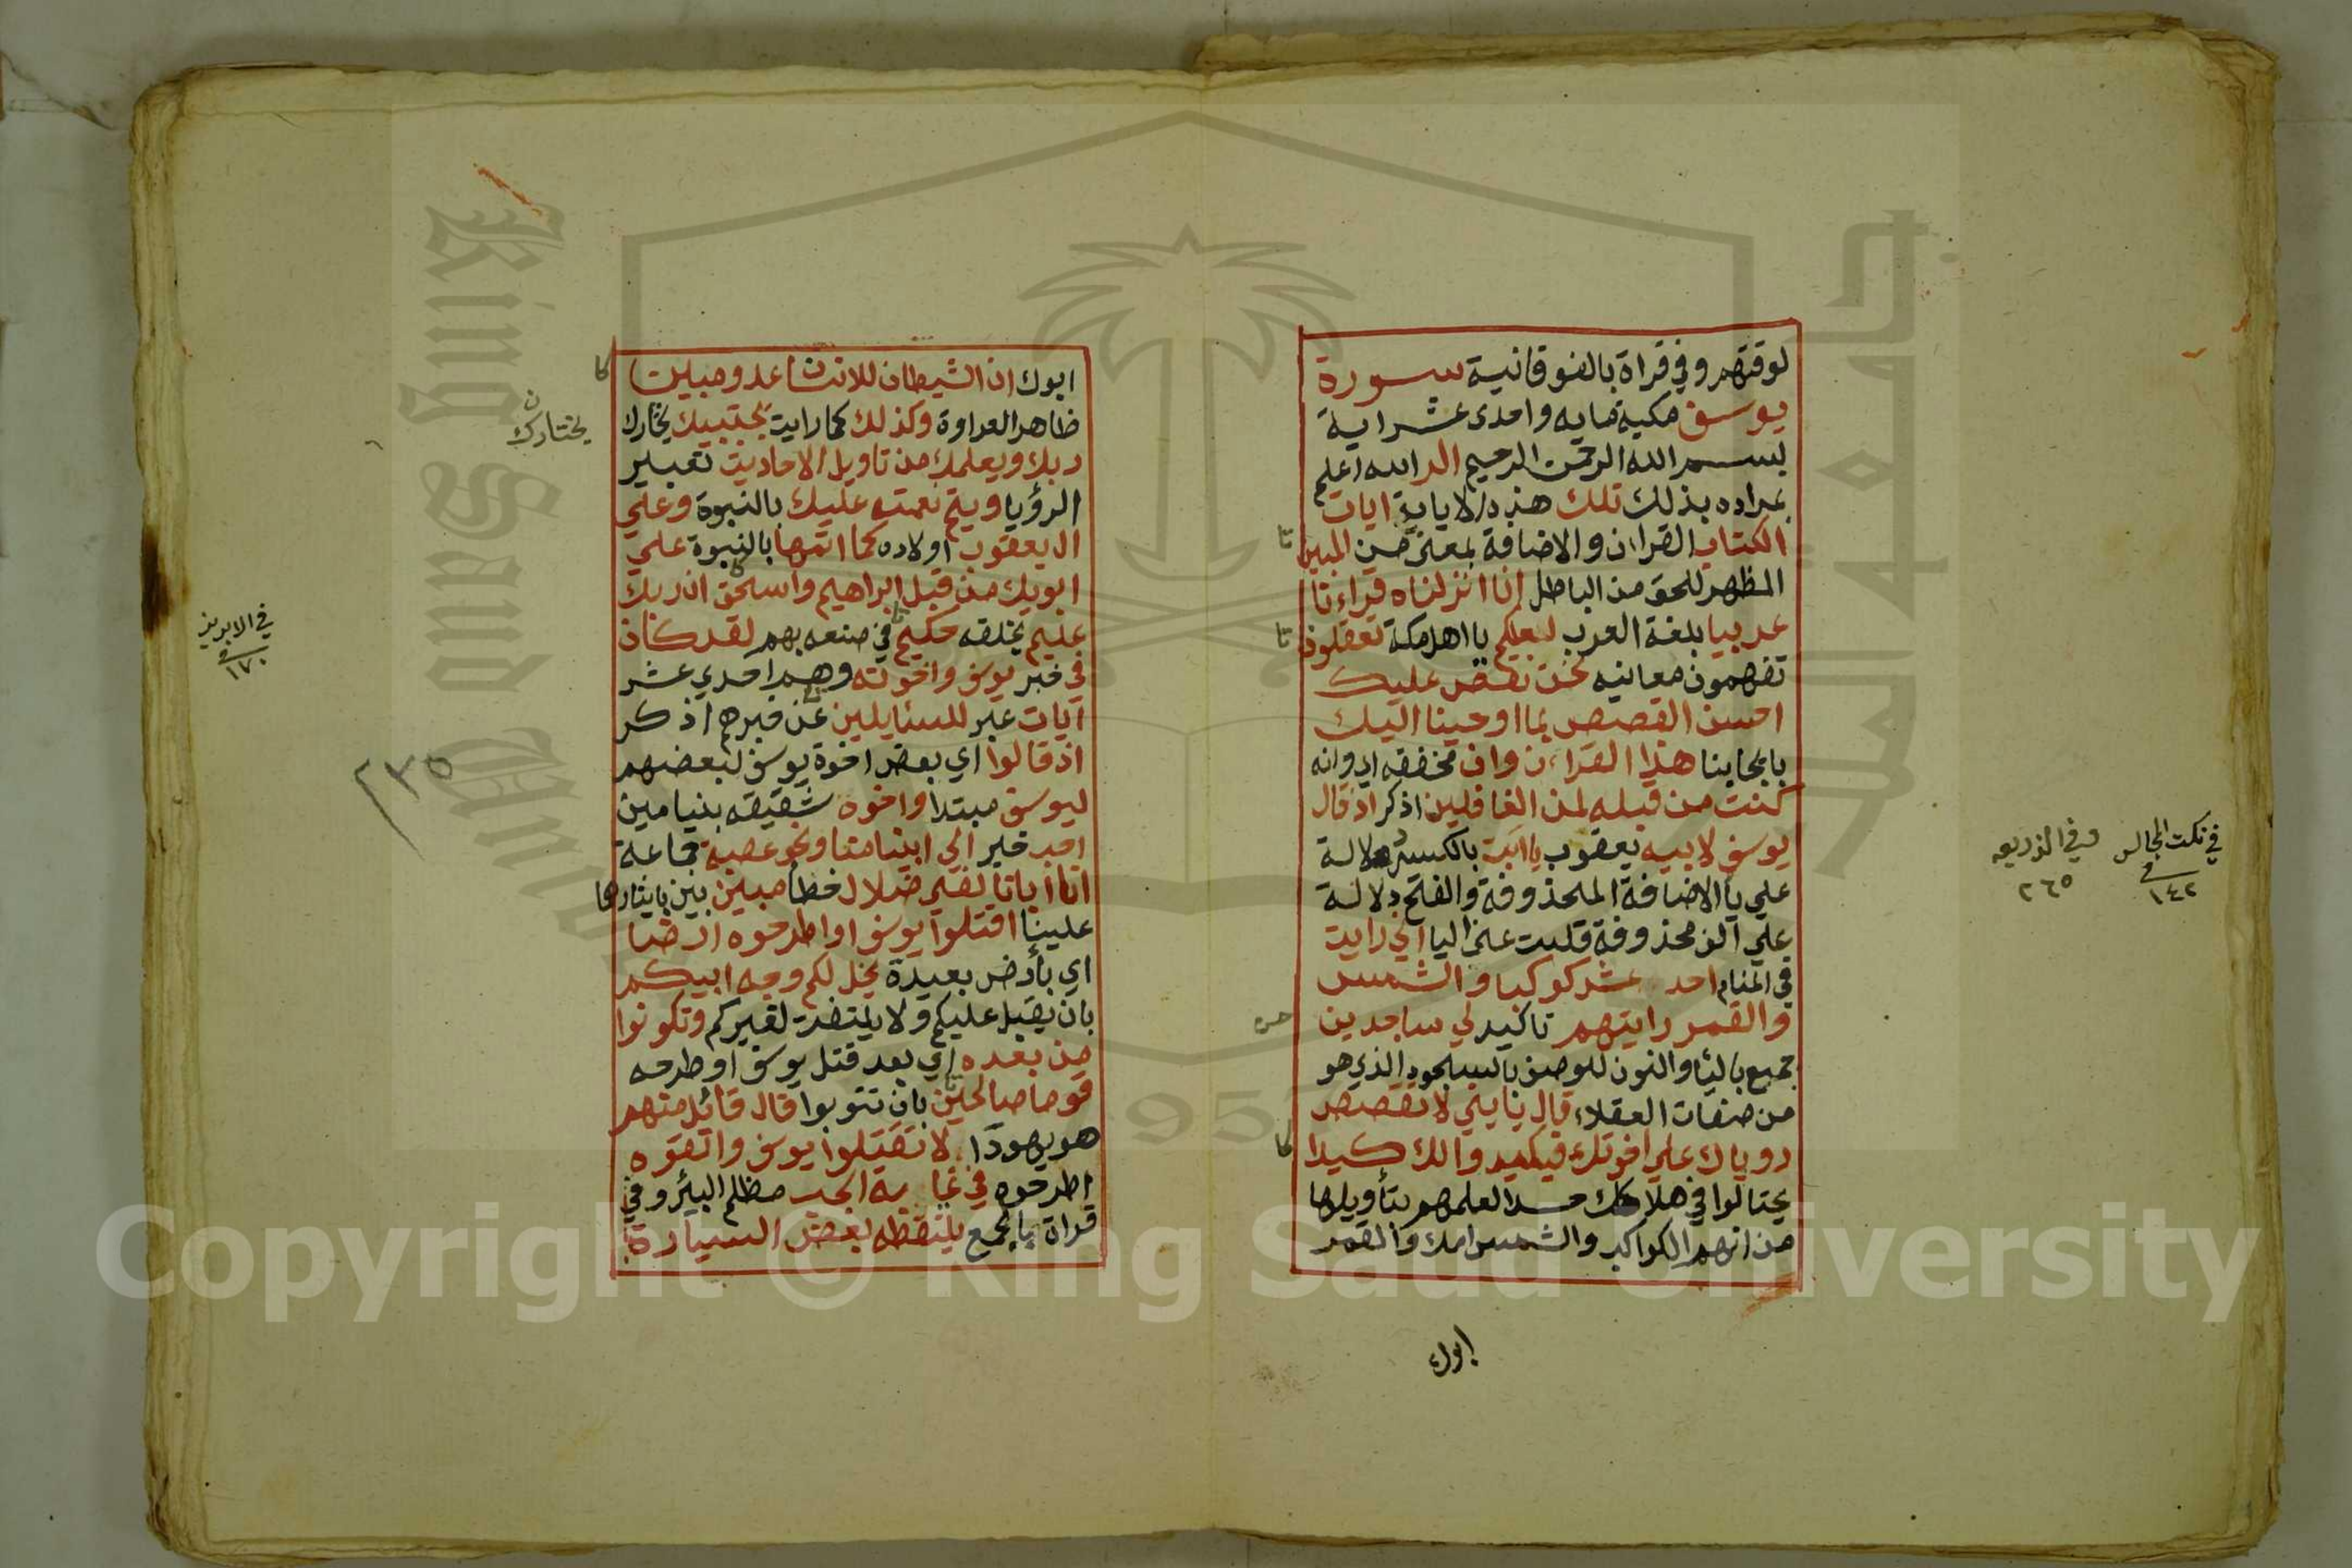 لوقتهم وفي قراة بالفوقانية سورة
يوسف مكية مايه واحدى عشراية
بسم الله الرحمن الرحيم الر الله اعلم
بمراده بذلك تلك هذه الايات ايات
الكتاب القران والاضافة بمعنى من المبين
المظهر للحق من الباطل انا انزلناه قراءنا
عربيا بلغة العرب لعلكم يا اهل مكة تعقلون
تفهمون معانيه نحن نقص عليك
احسن القصص بما اوحينا اليك
بايحاينا هذا القراءن وان مخففه اي وانه
كنت من قبله لمن الغافلين اذكر اذ قال
يوسف لابيه يعقوب يا ابت بالكسر دلالة
علي يا الاضافة المحذوفة والفتح دلالة
علي الف محذوفة قلبت عن اليا اني رايت
في المنام احد عشر كوكبا والشمس
والقمر رايتهم تاكيد لي ساجدين
جمع باليا والنون للوصف بالسجود الذي هو
من صفات العقلاء قال يابني لا تقصص
روياك علي اخوتك فيكيدوا لك كيدا
يحتالوا في هلاكك حسدا لعلمهم بتأويلها
من انهم الكواكب والشمس امك والقمر
ابوك
في نكت المجالس
١٤٢
وفي الذريعه
٢٦٥
ابوك ان الشيطان للانسان عدو مبين
ظاهر العداوة وكذلك كما رايت يجتبيك يختارك
ربك ويعلمك من تاويل الاحاديث تعبير
الرؤيا ويتم نعمته عليك بالنبوة وعلي
ال يعقوب اولاده كما اتمها بالنبوة علي
ابويك من قبل ابراهيم واسحق ان ربك
عليم بخلقه حكيم في صنعه بهم لقد كان
في خبر يوسف واخوته وهم احدي عشر
آيات عبر للسئايلين عن خبرهم اذكر
اذ قالوا اي بعض اخوة يوسف لبعضهم
ليوسف مبتدا واخوه شقيقه بنيامين
احب خبر الي ابينا منا ونحن عصبة جماعة
ان ابانا لفي ضلال خطأ مبين بين بايثارهما
علينا اقتلوا يوسف او اطرحوه ارضا
اي بأرض بعيدة يخل لكم وجه ابيكم
بان يقبل عليكم ولا يلتفت لغيركم وتكونوا
من بعده اي بعد قتل يوسف او طرحه
قوما صالحين بان تتوبوا قال قائل منهم
هو يهودا لا تقتلوا يوسف والقوه
اطرحوه في غيابة الجب مظلم البئر وفي
قراة بالجمع يلتقطه بعض السيارة
يختارك ن
في الابريز
١٧٠
٢٣٥
King Saud University
جامعة الملك
Copyright © King Saud University